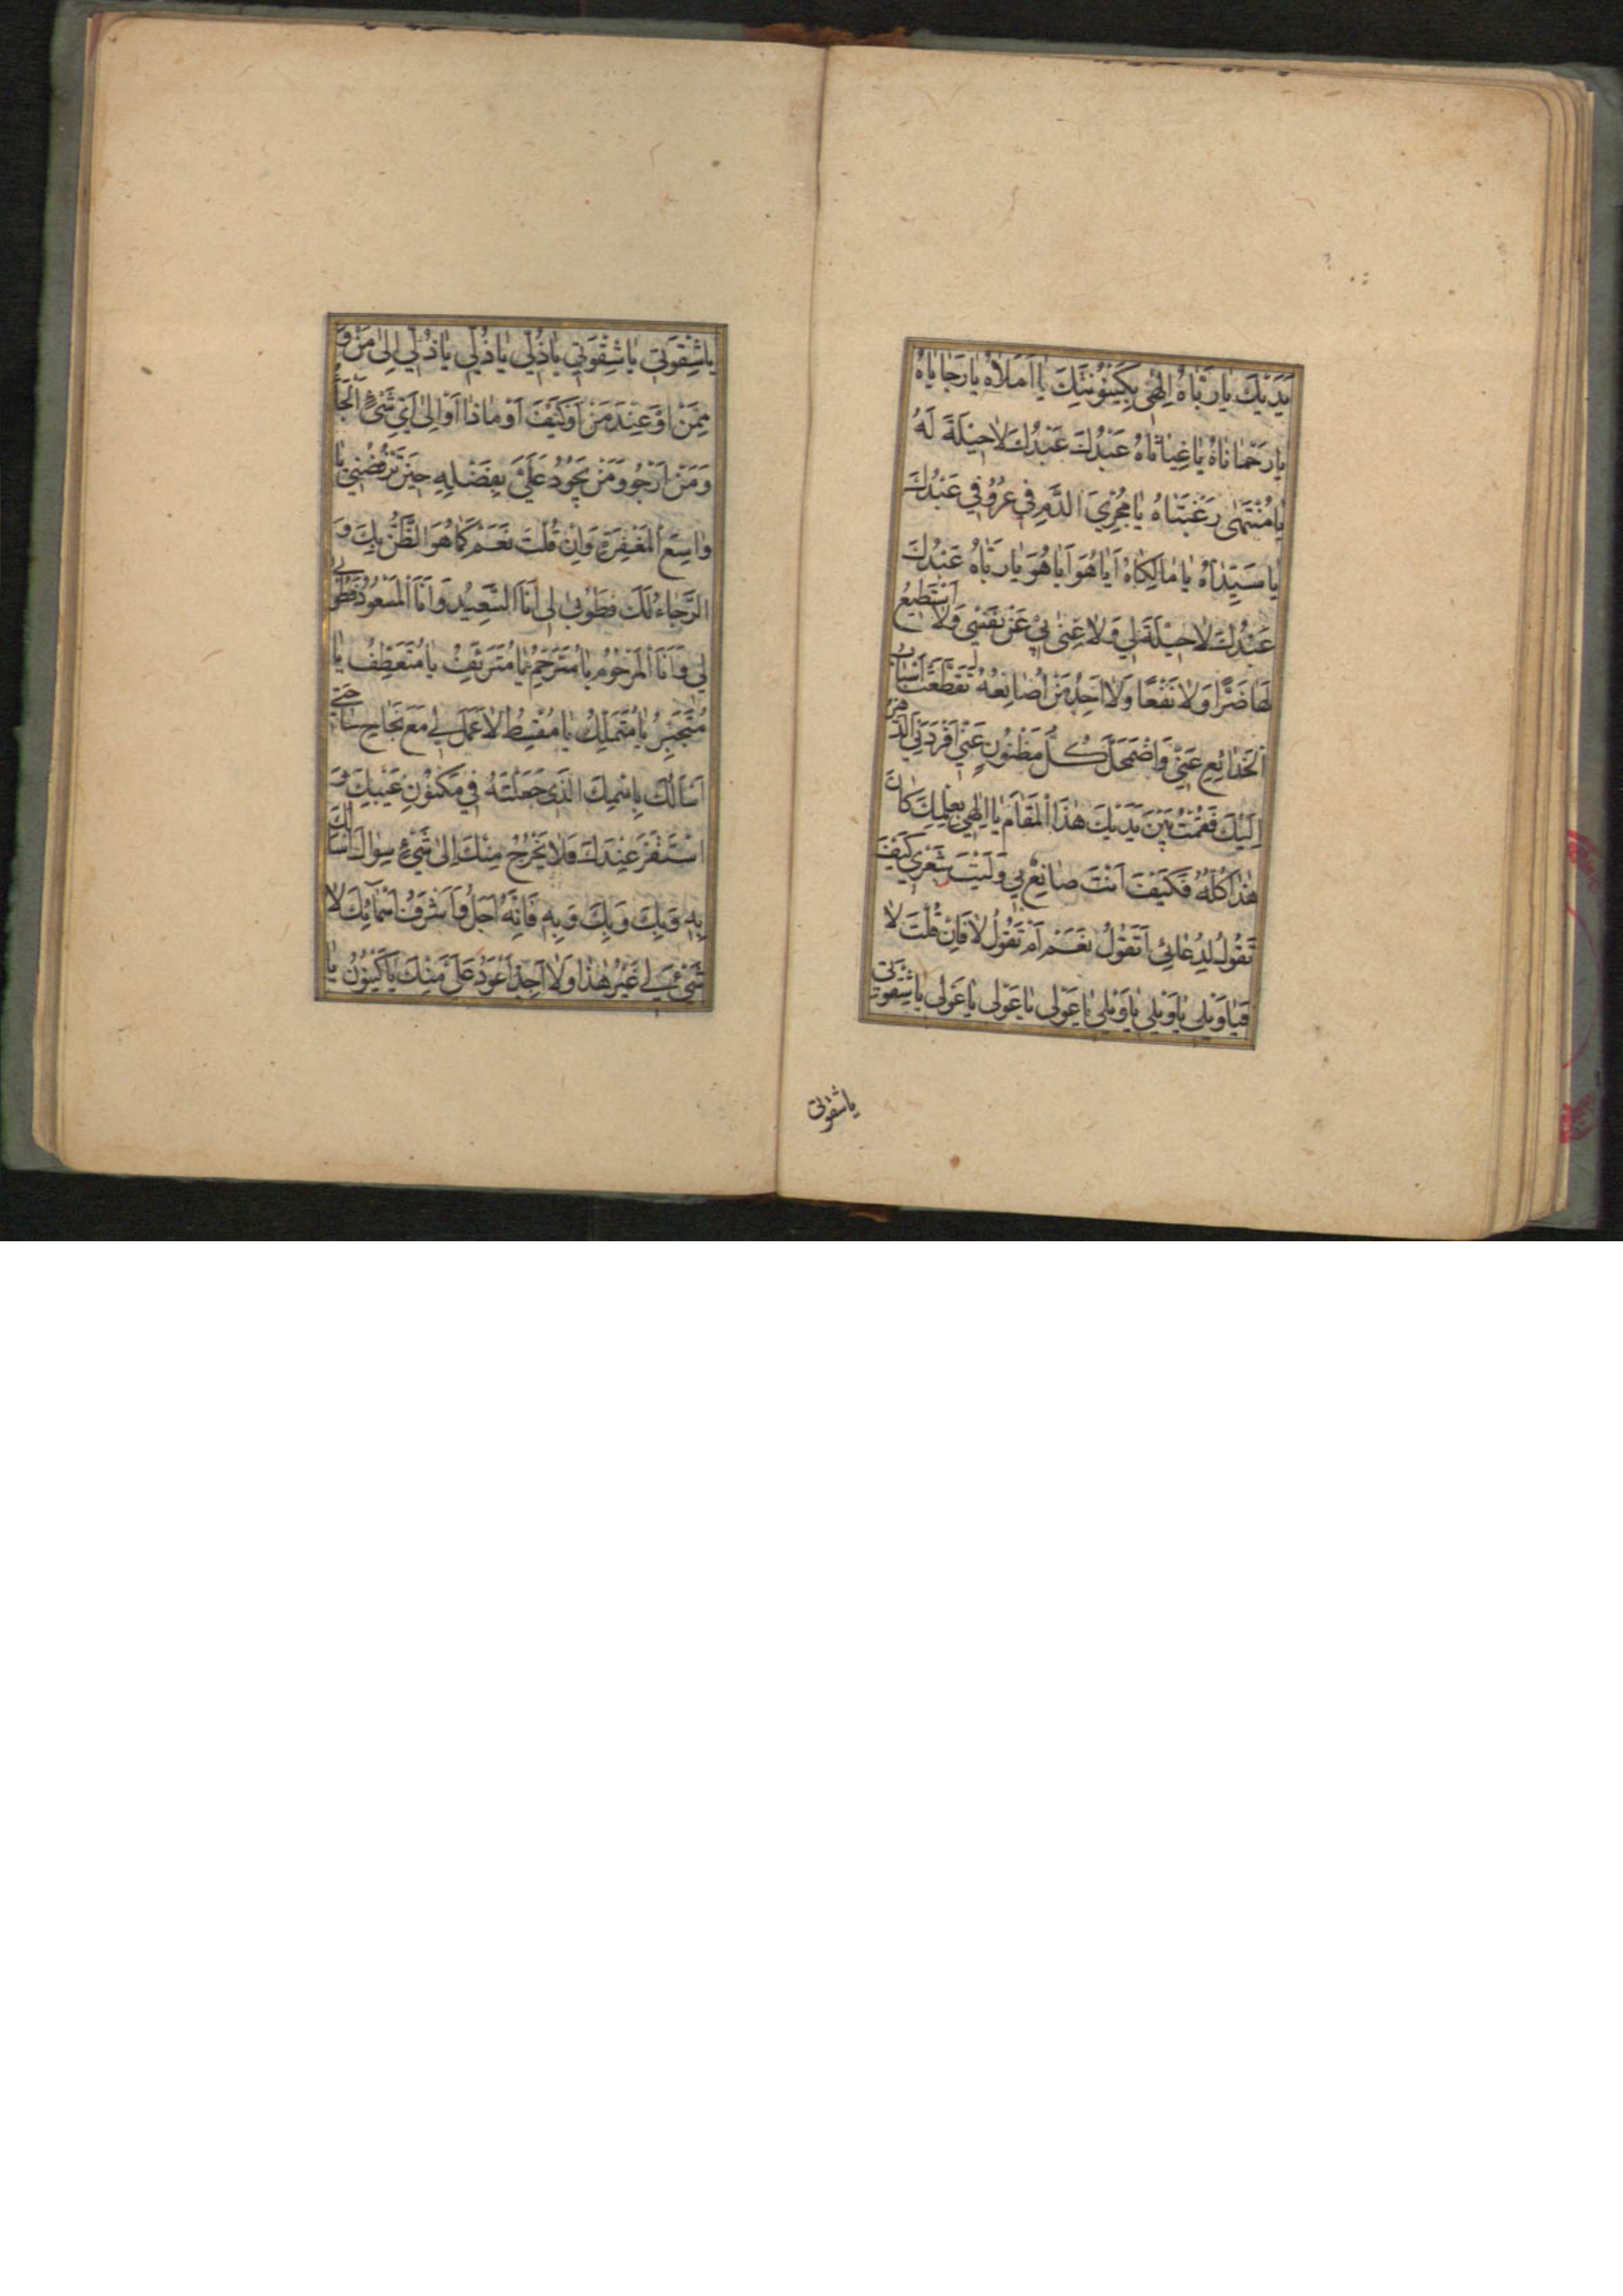 يَدَيْكَ يٰا رَبّٰاهُ اِلٰهٰى بِكَيْنُوُنَتِكَ يٰا اَمَلاٰهُ يٰا رَجٰايٰاهُ
يٰا رَحْمٰانٰاهُ يٰا غِيٰاثٰاهُ عَبْدُكَ عَبْدُكَ لاٰ حيٖلَةَ لَهُ
يٰا مُنْتَهٰى رَغْبَتٰاهُ يٰا مُجْرِيَ الدَّمِ فى عُرُوُقى عَبْدُكَ
يٰا سَيِّدٰاهُ يٰا مٰالِكٰاهُ اَيٰا هُوَ اَيٰا هُوَ يٰا رَبّٰاهُ عَبْدُكَ
عَبْدُكَ لاٰ حيٖلَةَ لي وَلاٰ غِنٰى بي عَنْ نَفْسي وَلاٰ اَسْتَطيعُ
لَهٰا ضَرًّا وَلاٰ نَفْعًا وَلاٰ اَجِدُ مَنْ اُصٰانِعُهُ تَقَطَّعَتْ اَسْبٰابُ
الْخَدٰائِعِ عَنّي وَاضْمَحَلَّ كُلُّ مَظْنُونٍ عَنّي اَفْرَدَنِي الدَّهْرُ
اِلَيْكَ فَقُمْتُ بَيْنَ يَدَيْكَ هٰذَا الْمَقٰامَ يٰا اِلٰهي بِعِلْمِكَ كٰانَ
هٰذٰا كُلُّهُ فَكَيْفَ اَنْتَ صٰانِعٌ بي وَلَيْتَ شَعْري كَيْفَ
تَقُولُ لِدُعٰائي اَتَقُولُ نَعَمْ اَمْ تَقُولُ لاٰ فَاِنْ قُلْتَ لاٰ
فَيٰا وَيْلى يٰا وَيْلي يٰا وَيْلي يٰا عَوْلى يٰا عَوْلى يٰا عَوْلى يٰا شِقْوَتى
يا شقوتى
يٰا شِقْوَتي يٰا شِقْوَتي يٰا ذُلّي يٰا ذُلّي يٰا ذُلّي اِلىٰ مَنْ وَ
مِمَّنْ اَوْ عِنْدَ مَنْ اَوْ كَيْفَ اَوْ مٰاذٰا اَوْ اِلىٰ اَيِّ شَيْءٍ اَلْجَأُ
وَمَنْ اَرْجُو وَمَنْ يَجُودُ عَلَيَّ بِفَضْلِهِ حينَ تَرْفُضُني يٰا
وٰاسِعَ الْمَغْفِرَةِ وَاِنْ قُلْتَ نَعَمْ كَمٰا هُوَ الظَّنُّ بِكَ وَ
الرَّجٰاءُ لَكَ فَطُوبٰى لى اَنَا السَّعيدُ وَاَنَا الْمَسْعُودُ فَطُوبى
لي وَاَنَا الْمَرْحُومُ يٰا مُتَرَحِّمُ يٰا مُتَرَئِّفُ يٰا مُتَعَطِّفُ يٰا
مُتَجَبِّرُ يٰا مُتَمَلِّكُ يٰا مُقْسِطُ لاٰ عَمَلَ لي مَعَ نَجٰاحِ حٰاجَتي
اَسْأَلُكَ بِاسْمِكَ الَّذى جَعَلْتَهُ في مَكْنُونِ غَيْبِكَ وَ
اسْتَقَرَّ عِنْدَكَ فَلاٰ يَخْرُجُ مِنْكَ اِلىٰ شَيْءٍ سِوٰاكَ اَسْأَلُكَ
بِهِ وَبِكَ وَبِكَ وَبِهِ فَاِنَّهُ اَجَلُّ وَاَشْرَفُ اَسْمٰائِكَ لاٰ
شَيْءَ لي غَيْرُ هٰذٰا وَلاٰ اَجِدُ اَعْوَدَ عَلَيَّ مِنْكَ يٰا كَيْنُونُ يٰا